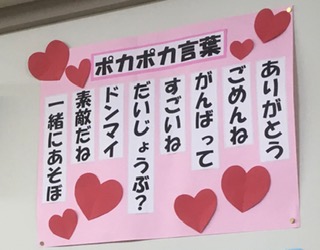 ポカポカ言葉
ありがとう
ごめんね
がんばって
すごいね
だいじょうぶ?
ドンマイ
素敵だね
一緒にあそぼ